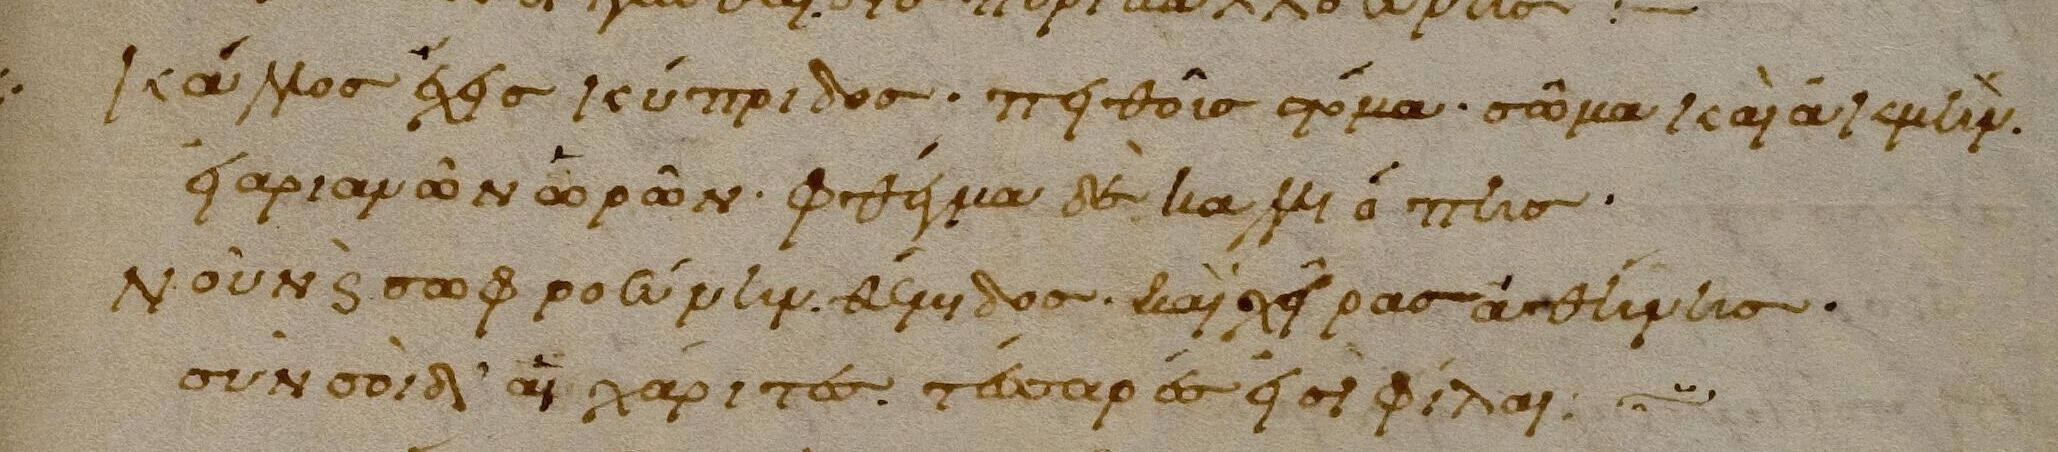 κάλλος ἔχεις κύπριδος· πειθοῦς στόμα· σῶμα καὶ ἀκμὴν·
εἰαρινῶν ὡρῶν· φθέγμα δὲ καλλιόπης·
νοῦν καὶ σωφροσύνην θέμιδος· καὶ χεῖρας ἀθήνης·
σὺν σοὶ δ' αἱ χάριτες τέσσαρές εἰσι φίλαι: